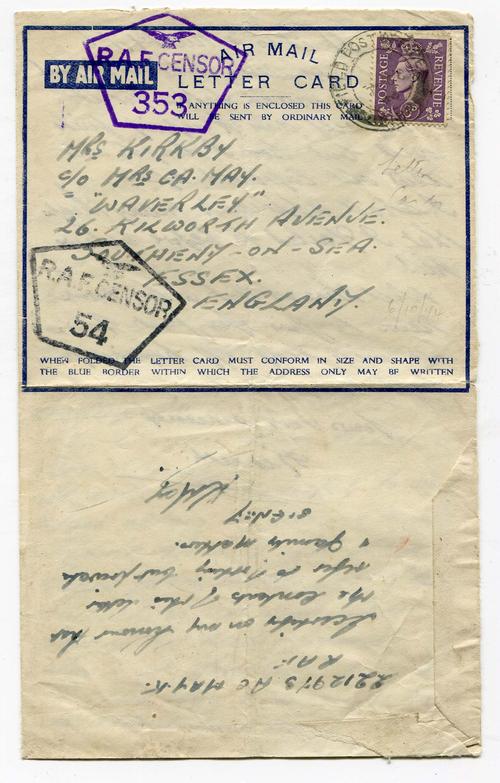 BY AIR MAIL
AIR MAIL
LETTER CARD
R.A.F. CENSOR
353
ANYTHING IS ENCLOSED THIS CARD
WILL BE SENT BY ORDINARY MAIL
POSTAGE REVENUE
MRS KIRKBY
C/O MRS C.A. MAY.
"WAVERLEY"
26. KILWORTH AVENUE.
SOUTHEND-ON-SEA.
ESSEX.
ENGLAND.
Letter
Card
R.A.F. CENSOR
54
WHEN FOLDED THE LETTER CARD MUST CONFORM IN SIZE AND SHAPE WITH
THE BLUE BORDER WITHIN WHICH THE ADDRESS ONLY MAY BE WRITTEN
2212973 AC MAY. K.
R.A.F
on my honour that
the contents of this letter
refer to nothing but private
& family matters.
SIGNED
KMay